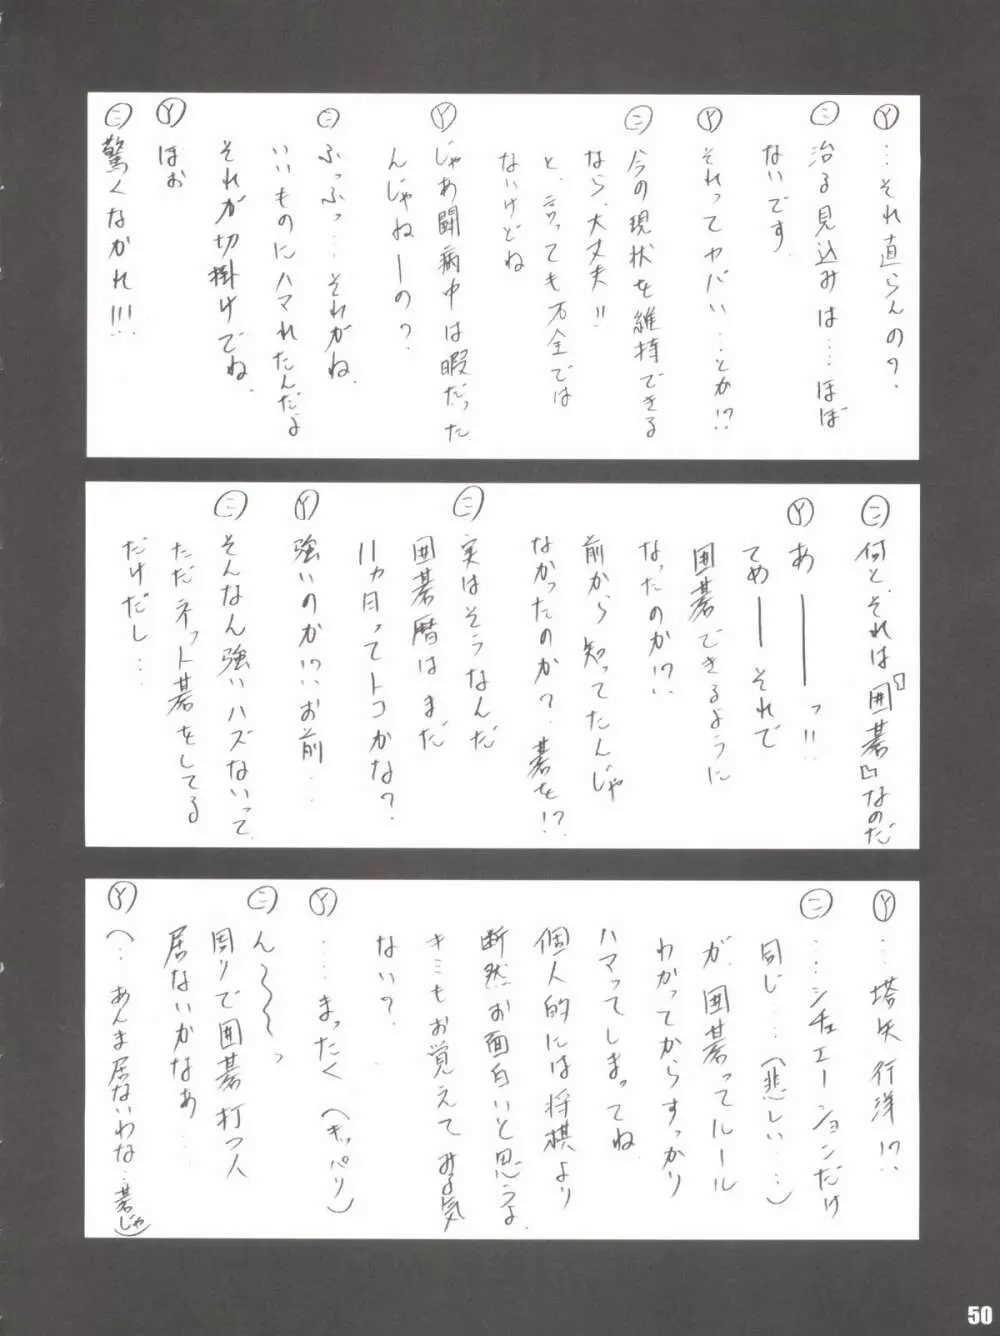 Ⓨ …それ直らんの?
㊁ 治る見込みは…ほぼ
ないです.
Ⓨ それってヤバい…とか!?
㊁ 今の現状を維持できる
なら、大丈夫!!
と、言っても万全では
ないけどね
Ⓨ じゃあ闘病中は暇だった
んじゃねーの?
㊁ ふっふっ…それがね.
いいものにハマれたんだよ
それが切掛けでね.
Ⓨ ほぉ
㊁ 驚くなかれ!!!
㊁ 何と、それは『囲碁』なのだ
Ⓨ あ――っ!!
てめ――それで
囲碁できるように
なったのか!?
前から知ってたんじゃ
なかったのか?碁を!?
㊁ 実はそうなんだ
囲碁暦はまだ
11ヵ月ってトコかな?
Ⓨ 強いのか!?お前…
㊁ そんなん強いハズないって.
ただネット碁をしてる
だけだし…
Ⓨ …塔矢行洋!?
㊁ ……シチュエーションだけ
同じ……(悲しい…)
が、囲碁ってルール
わかってからすっかり
ハマってしまってね.
個人的には将棋より
断然お面白いと思うよ.
キミもお覚えてみる気
ない?
Ⓨ ……まったく(キッパリ)
㊁ ん〜〜〜っ
周りで囲碁打つ人
居ないかなぁ…
Ⓨ (…あんま居ないわな…碁じゃ)
50